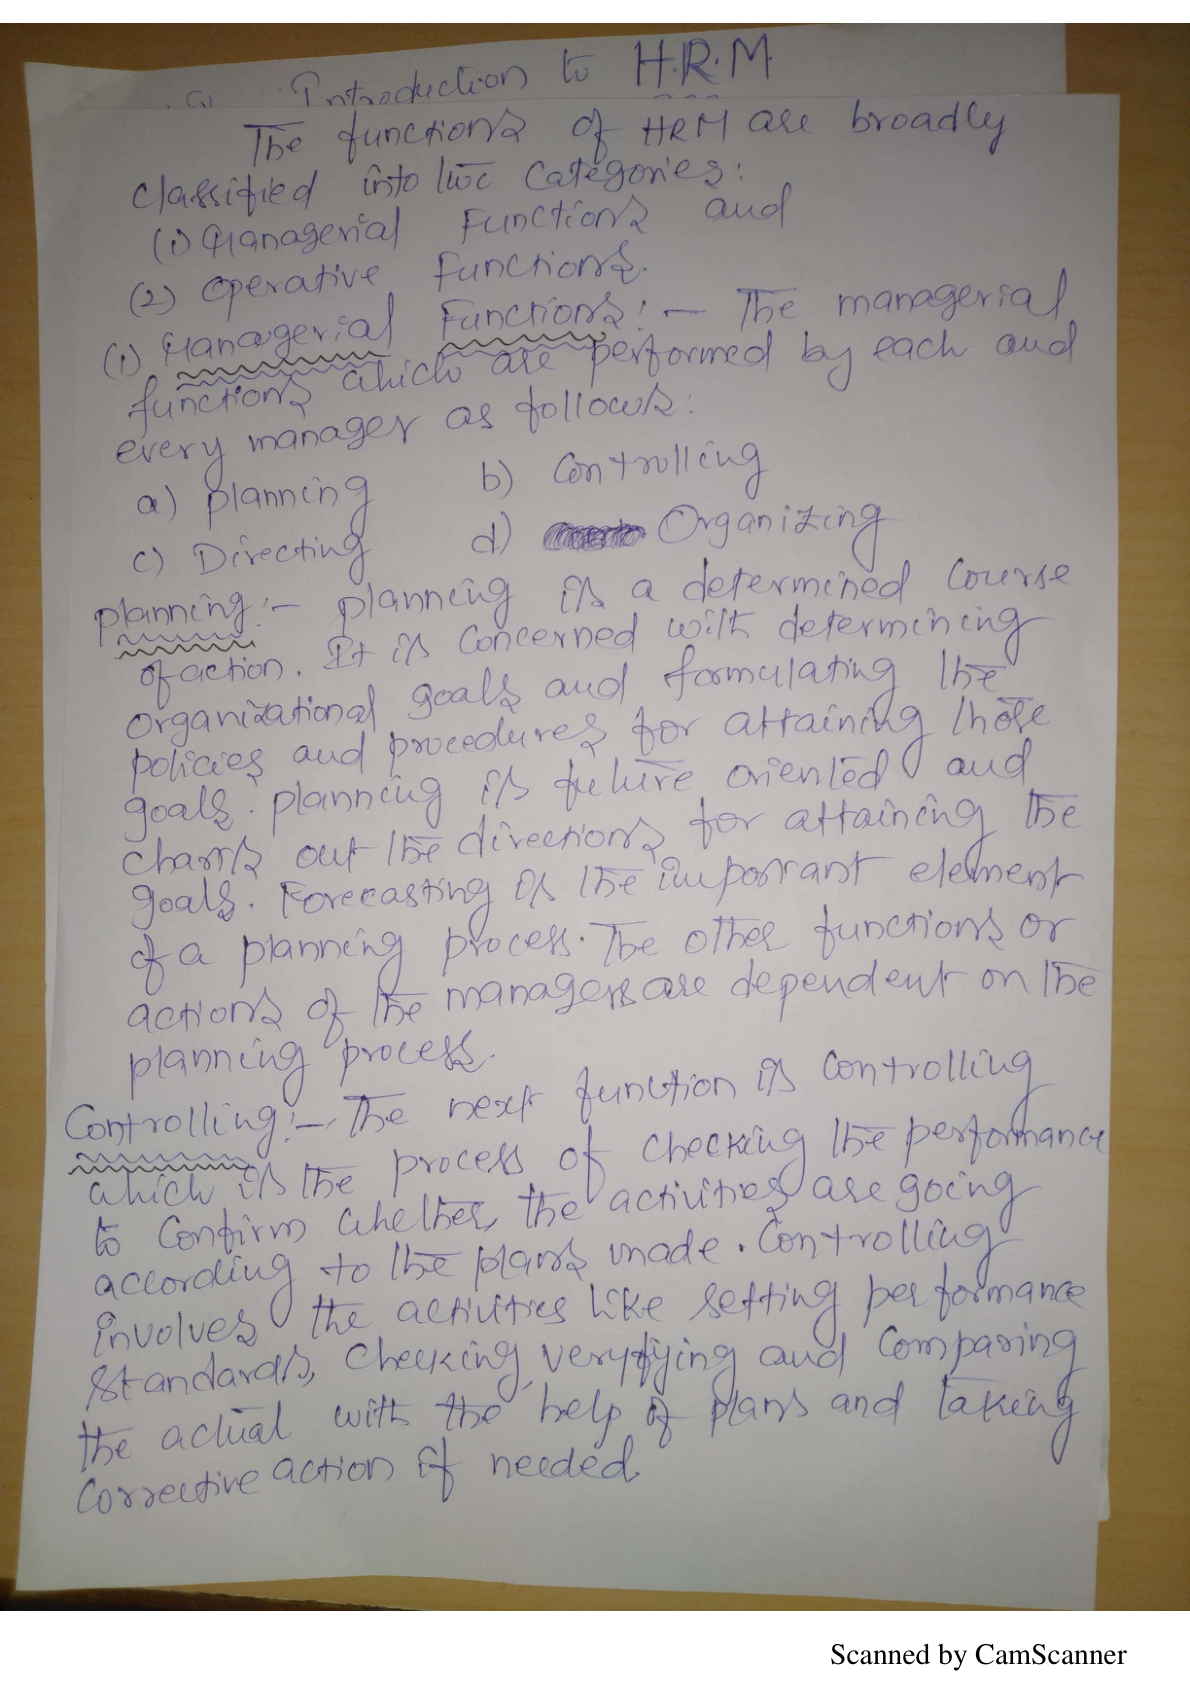 Introduction to H.R.M.
The functions of HRM are broadly
classified into two categories:
(1) Managerial Functions and
(2) Operative Functions.
(1) Managerial Functions:- The managerial
functions which are performed by each and
every manager as follows:
a) planning b) Controlling
c) Directing d) Organizing
planning:- planning is a determined course
of action. It is concerned with determining
organizational goals and formulating the
policies and procedures for attaining those
goals. planning is future oriented and
charts out the directions for attaining the
goals. Forecasting is the important element
of a planning process. The other functions or
actions of the managers are dependent on the
planning process.
Controlling:- The next function is controlling
which is the process of checking the performance
to confirm whether, the activities are going
according to the plans made. Controlling
involves the activities like setting performance
standards, checking, veryfying and comparing
the actual with the help of plans and taking
corrective action if needed.
Scanned by CamScanner